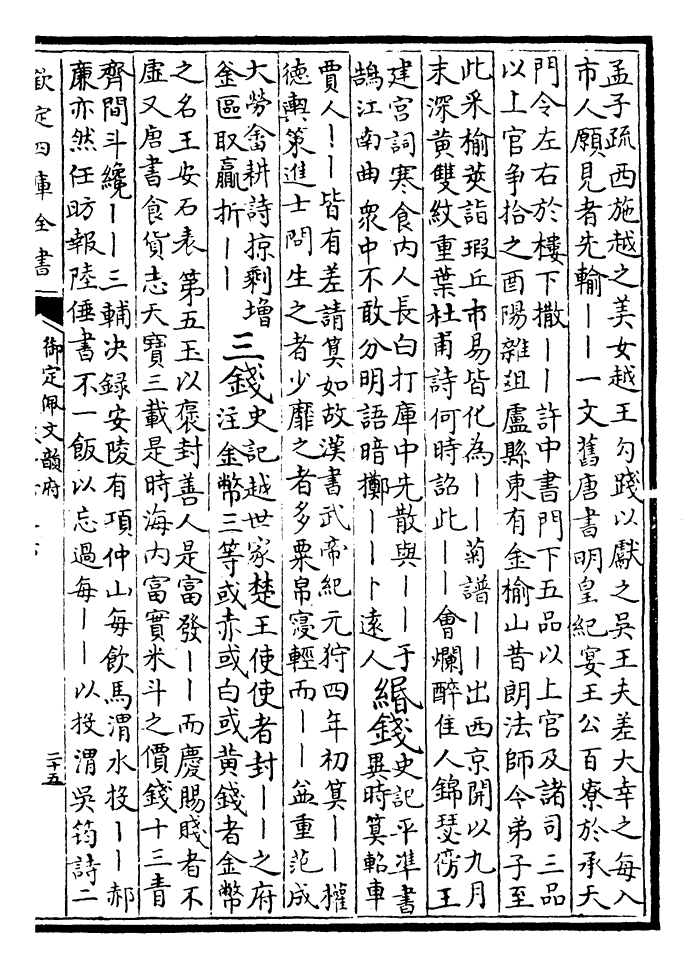 孟子疏西施越之美女越王勾踐以獻之吳王夫差大幸之每入
市人願見者先輸丨丨一文舊唐書明皇紀宴王公百寮於承天
門令左右於樓下撒丨丨許中書門下五品以上官及諸司三品
以上官争拾之酉陽雜俎盧縣東有金榆山昔朗法師令弟子至
此采榆莢詣瑕丘市易皆化為丨丨菊譜丨丨出西京開以九月
末深黄雙紋重葉杜甫詩何時詔此丨丨會爛醉佳人錦瑟傍王
建宫詞寒食内人長白打庫中先散與丨丨于
鵠江南曲衆中不敢分明語暗擲丨丨卜遠人
緡錢
史記平準書
異時筭軺車
賈人丨丨皆有差請筭如故漢書武帝紀元狩四年初筭丨丨權
德輿策進士問生之者少靡之者多粟帛寖輕而丨丨益重范成
大勞畬耕詩掠剩增
釜區取贏折丨丨
三錢
史記越世家楚王使使者封丨丨之府
注金幣三等或赤或白或黄錢者金幣
之名王安石表第五玉以褒封善人是富發丨丨而慶賜賤者不
虛又唐書食貨志天寶三載是時海内富實米斗之價錢十三青
齊間斗纔丨丨三輔决録安陵有項仲山每飲馬渭水投丨丨郝
廉亦然任昉報陸倕書不一飯以忘過每丨丨以投渭吳筠詩二
欽定四庫全書
御定佩文韻府
二十五